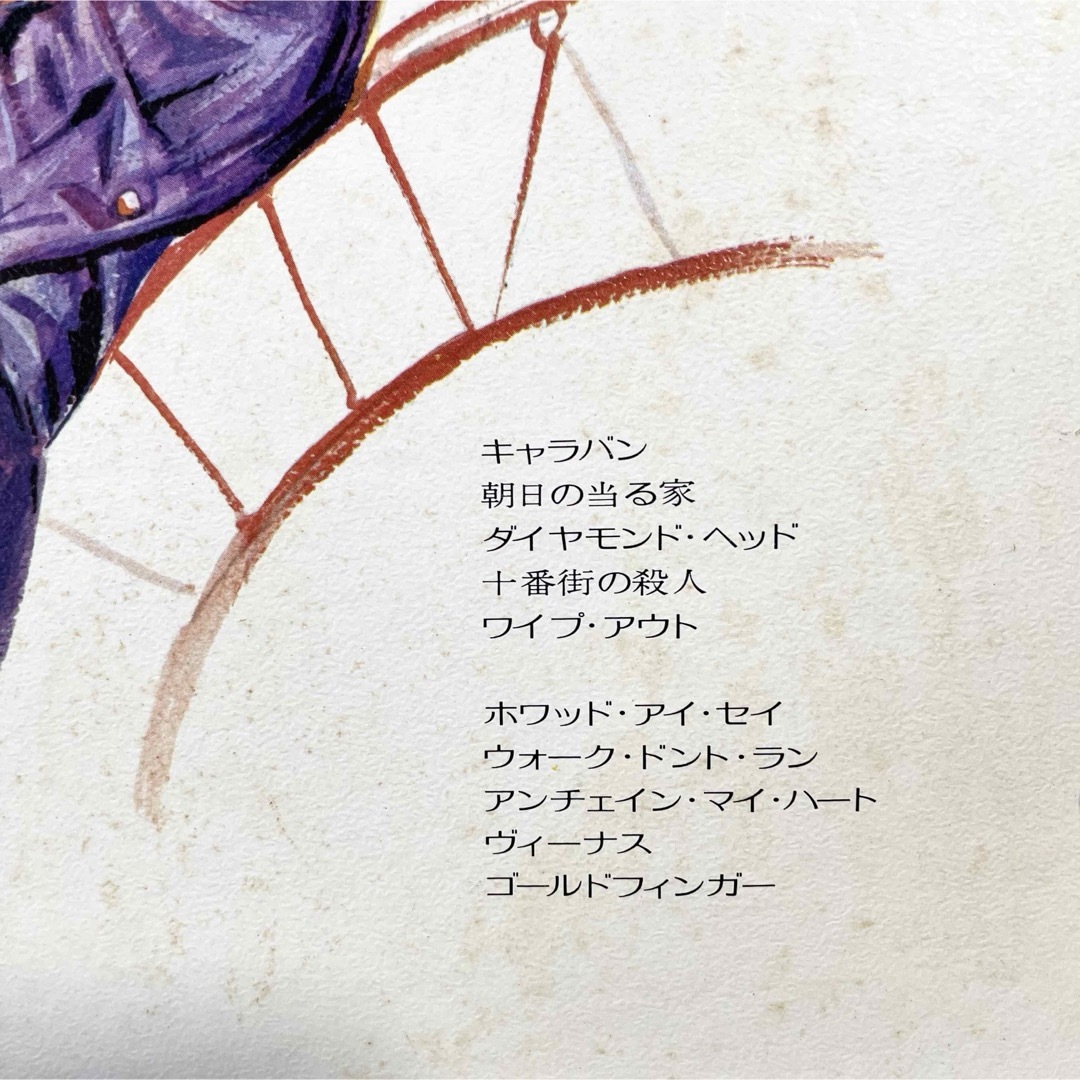 キャラバン
朝日の当る家
ダイヤモンド・ヘッド
十番街の殺人
ワイプ・アウト
ホワッド・アイ・セイ
ウォーク・ドント・ラン
アンチェイン・マイ・ハート
ヴィーナス
ゴールドフィンガー